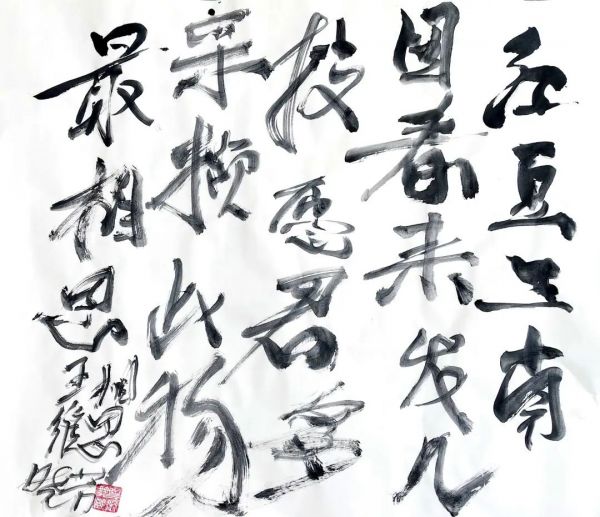 红豆生南
国春来发几
枝愿君多
采撷此物
最相思
相思
王維